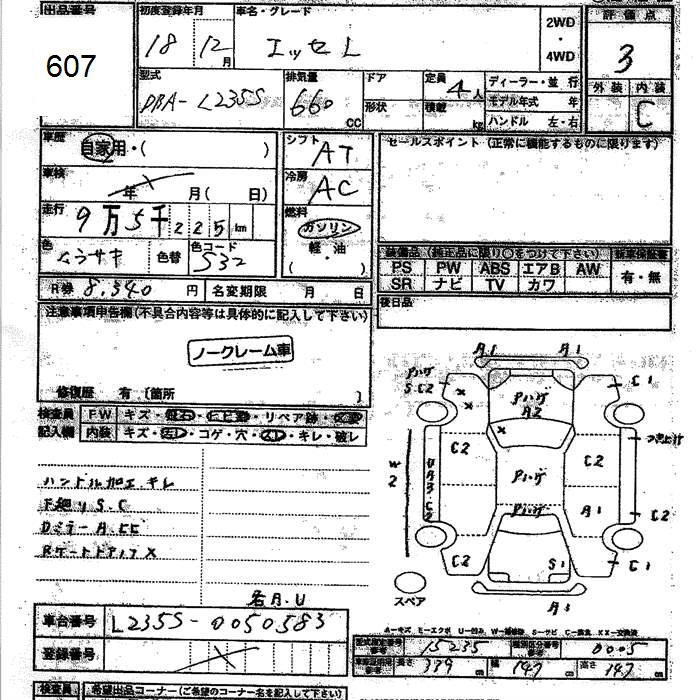 出品番号 初度登録年月 車名・グレード 2WD・4WD 評価点
607 18 12月 エッセL 3
型式 排気量 ドア 定員 4人 ディーラー・並行 外装 内装
DBA-L235S 660 CC 形状 積載 kg モデル年式 年 C
ハンドル 左・右
車歴 自家用・( ) シフト AT セールスポイント (正常に機能するものに限ります)
車検 年 月( 日) 冷房 AC
走行 9万5千225km 燃料 ガソリン・軽油 ( )
色 ムラサキ 色替 色コード S32
装備品 (純正品に限り○をつけて下さい) 新車保証書
PS PW ABS エアB AW 有・無
SR ナビ TV カワ
R券 8,340円 名変期限 月 日 後日品
注意事項申告欄(不具合内容等は具体的に記入して下さい)
ノークレーム車
修復歴 有 〔箇所 〕
検査員 FW キズ・飛石・ヒビ割・リペア跡・
記入欄 内装 キズ・汚レ・コゲ・穴・スレ・キレ・破レ
ハンドル加工.キレ
下廻りS.C
Rゲートドア
A1 A1
S.C2 C1
Pハゲ A2
C2 C2
W2 Pハゲ
Pハゲ A1 C2
C2 S1 C1
スペア A3
名A.U
車台番号 L235S-0050583
登録番号
A-キズ E-エクボ U-凹み W-補修跡 S-サビ C-腐食 XX-交換済
型式指定番号 15235 類別区分番号 0005
長さ 339 幅 147 高さ 147
検査員 希望出品コーナー(ご希望のコーナー名を記入して下さい)